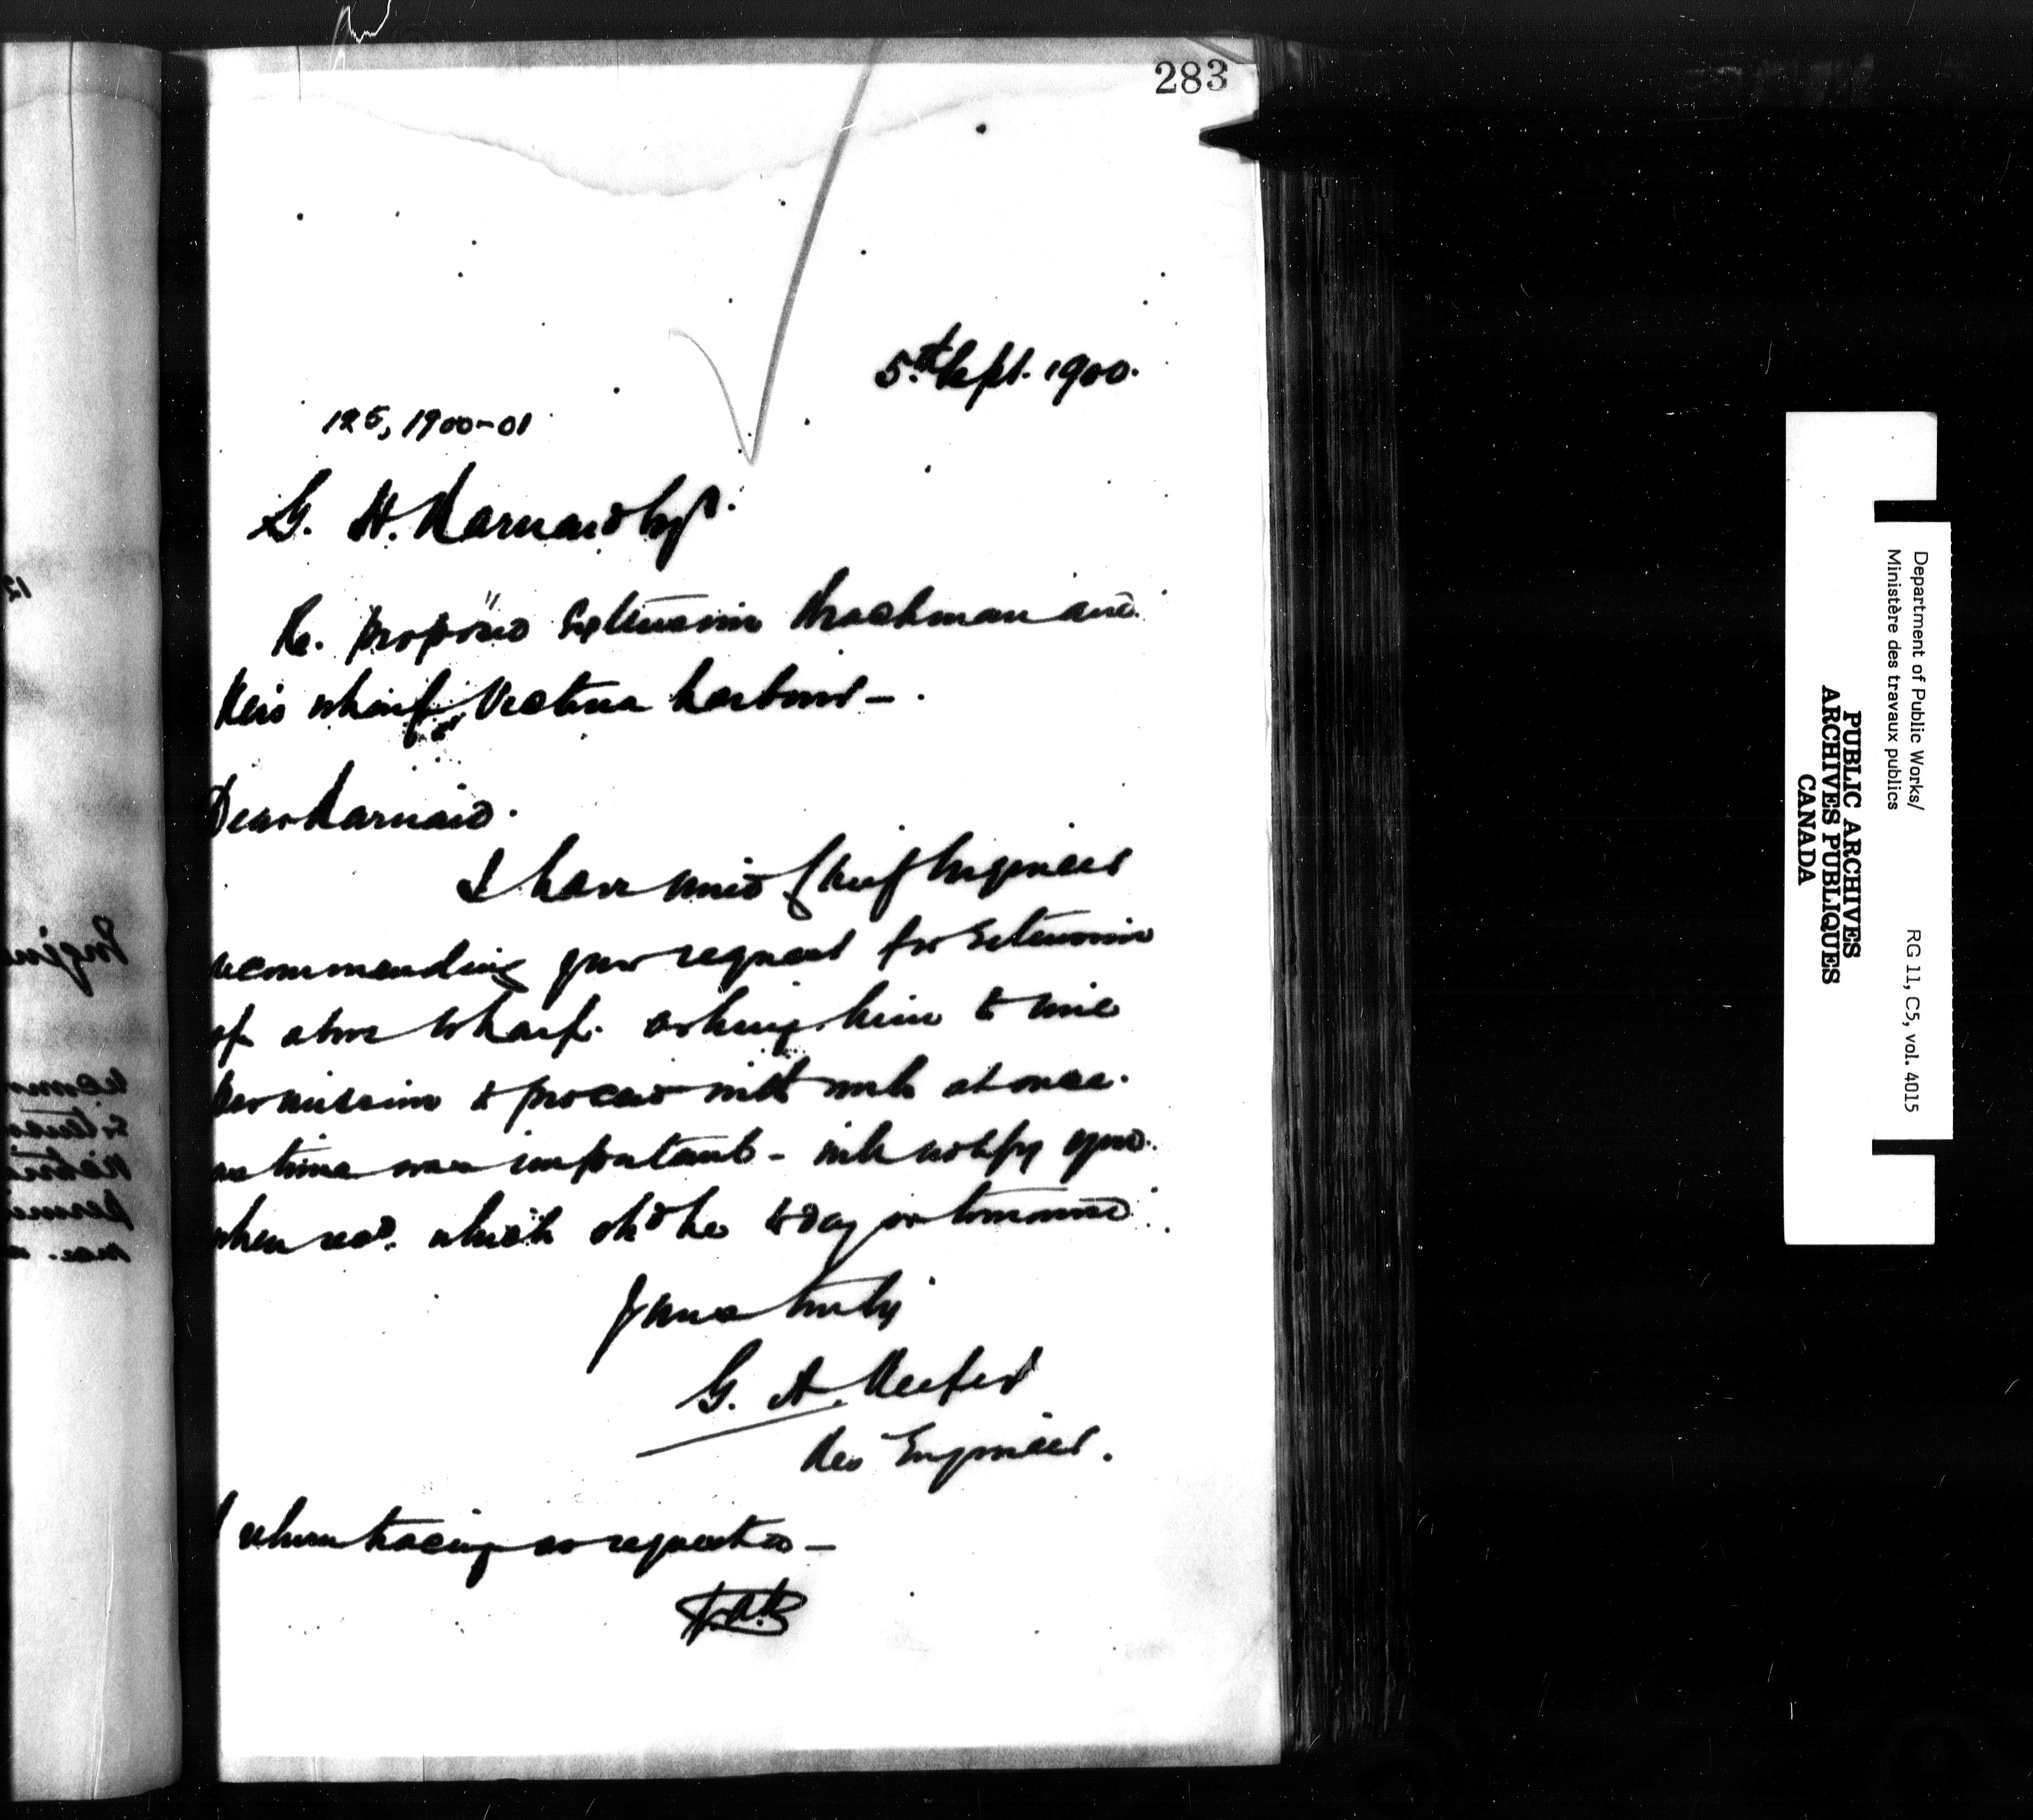 283
5th Sept. 1900.
125, 1900-01
G. H. Barnard Esqr.
Re. proposed Extension Brackman and
Ker's wharf, Victoria harbour -
Dear Barnard.
I have wired Chief Engineer
recommending your request for Extension
of above wharf. asking him to wire
permission to proceed with work at once.
as time was important - will notify you.
when recd. which shd be today or tomorrow
Yours truly
G. A. Keefer
Res Engineer.
tracing as requested -
G.A.K
Department of Public Works/
Ministère des travaux publics
RG 11, C5, vol. 4015
PUBLIC ARCHIVES
ARCHIVES PUBLIQUES
CANADA